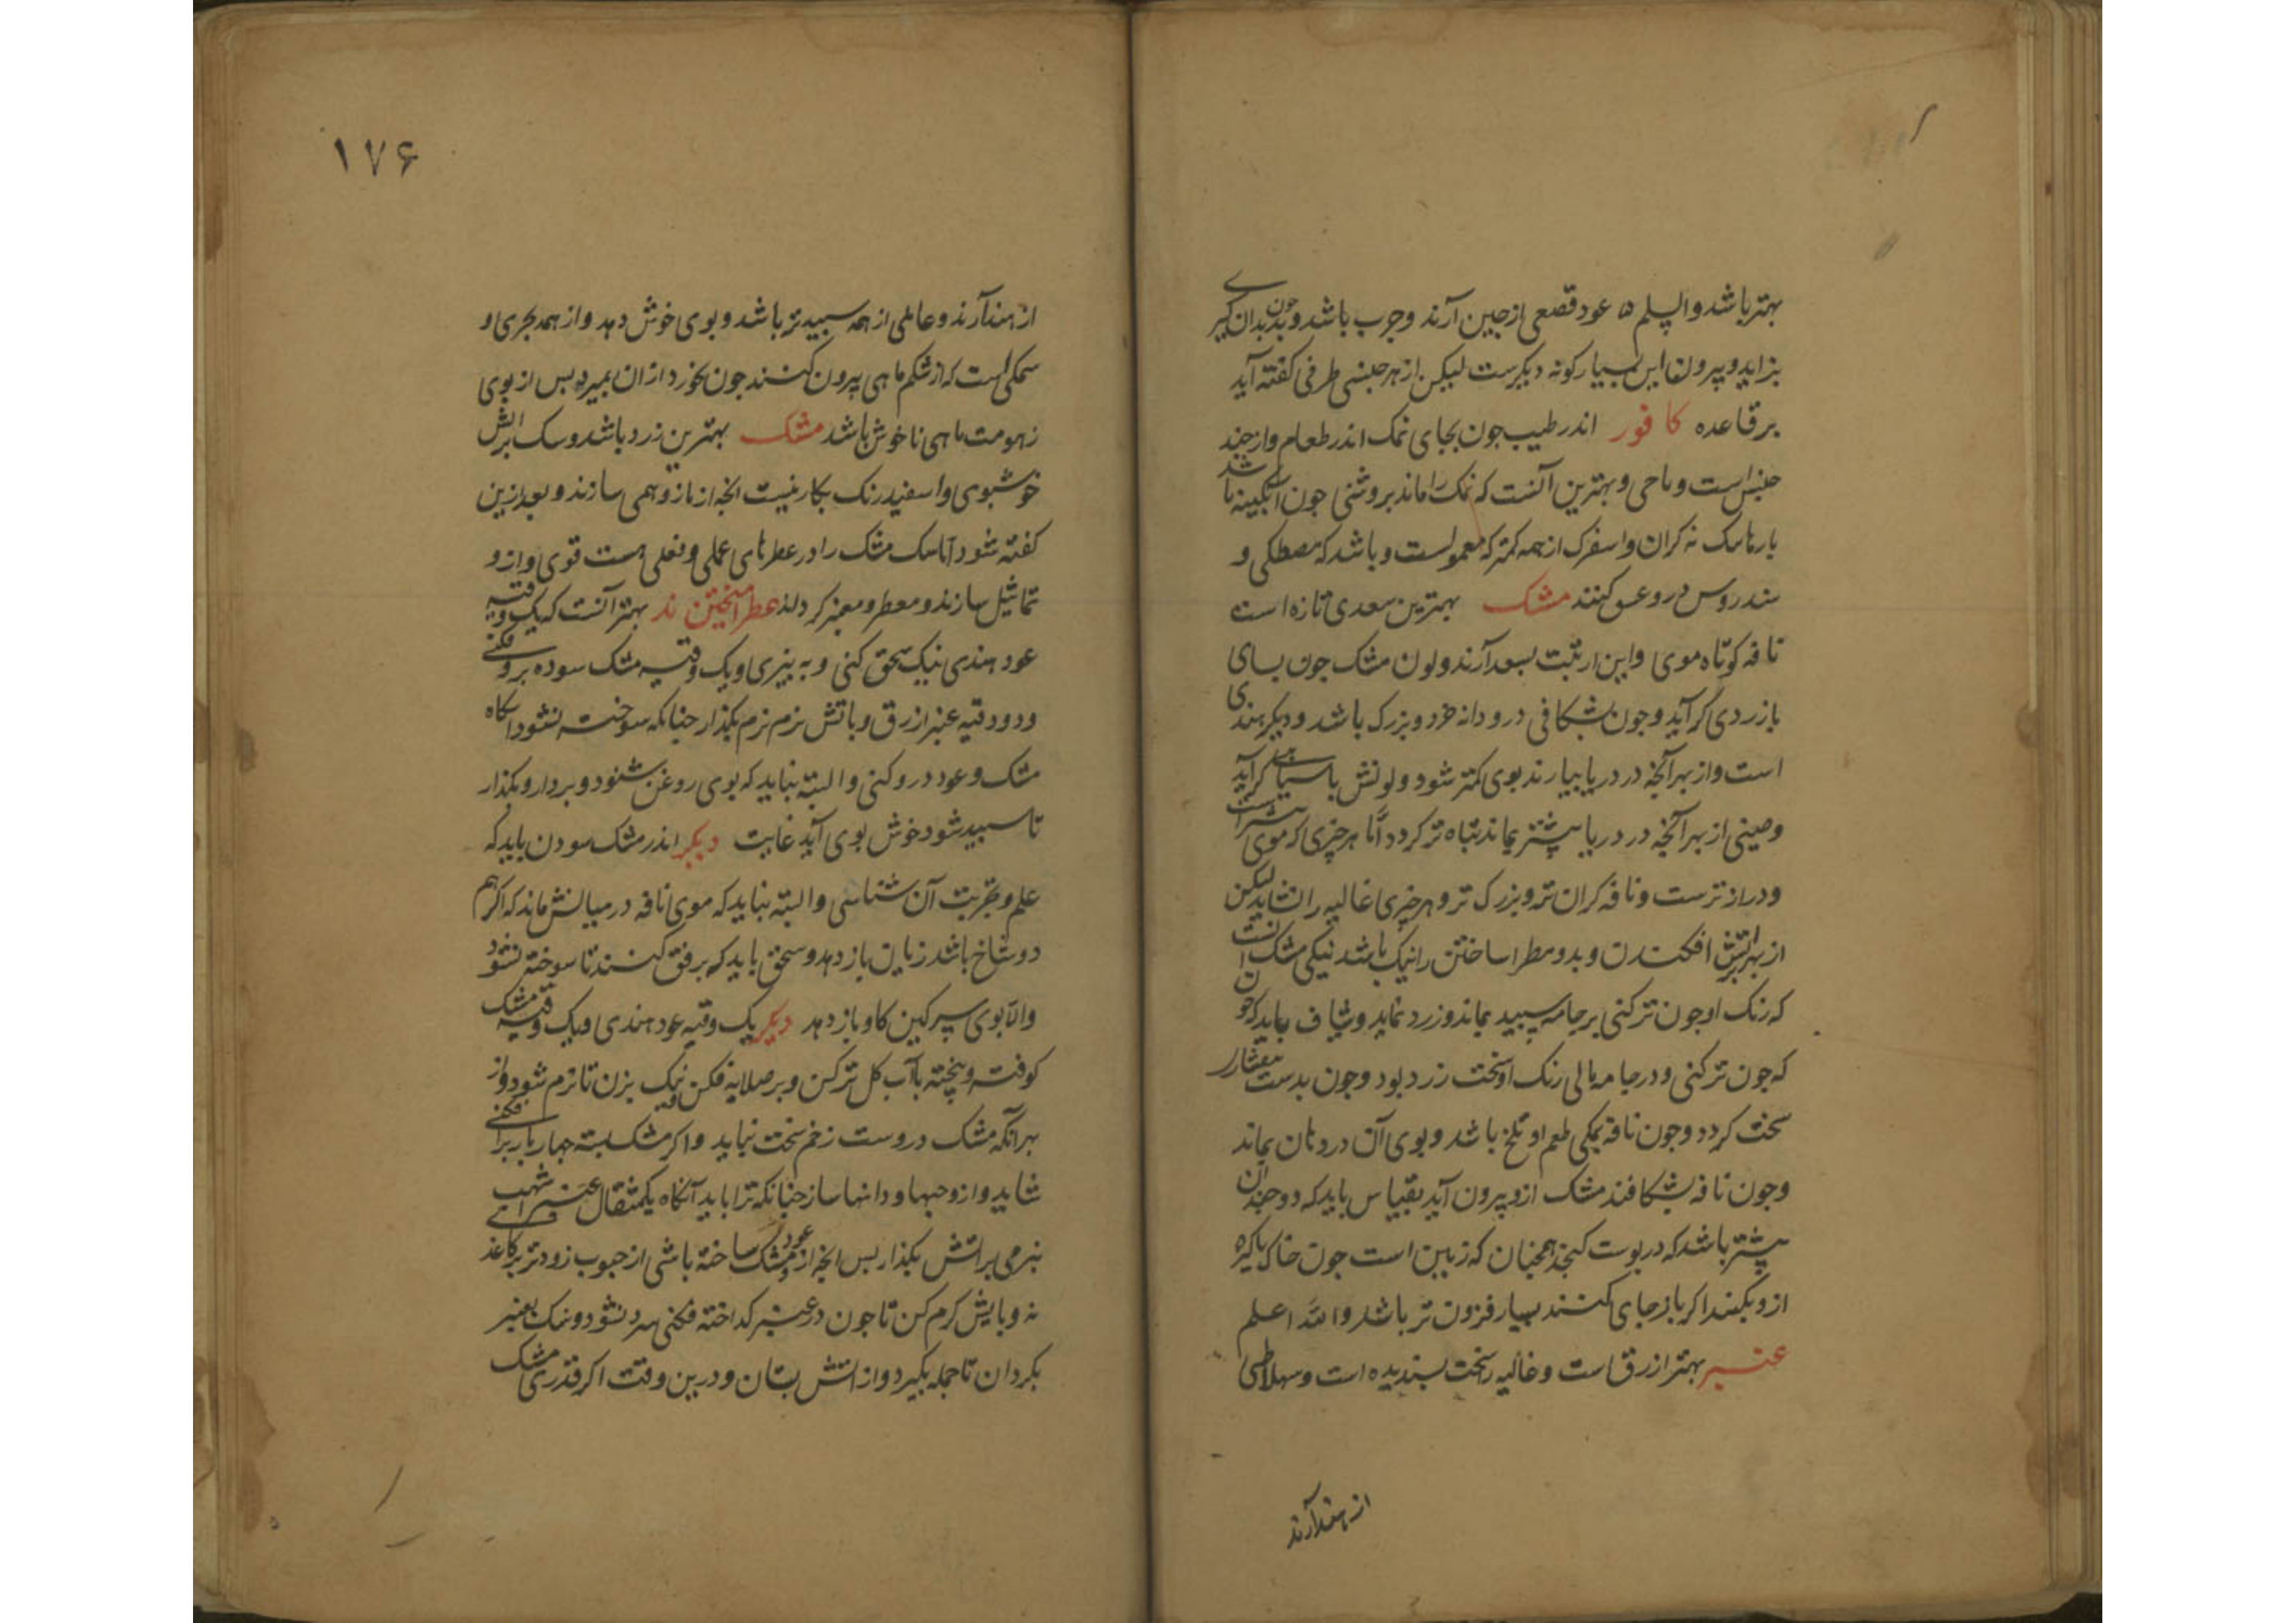 بهتر باشد والسلم ۵ عود قصعی از جین آرند وچرب باشد و جون بدندان گیرے
بزاید و بیرون این بسیار کونه دیکرست لیکن از هر جنسی طرفی کفته آید
بر قاعده کافور اندر طیب جون بجای نمک اندر طعام واز جند
جنس است و ماحی و بهترین آنست که نمک را ماند بروشنی جون آبکینه باشد
نه کران و اسفرک از همه کمتر که معمولست و باشد که مصطکی و
سندروس درو غش کنند مشک بهترین سعدی تازه است
نافه کوتاه موی واین از تبت بسعد آرند و لون مشک جون بسای
بازردی کراید و جون بشکافی درو دانه خرد و بزرک باشد و دیکر هندی
است واز بهر آنجه در دریا بیارند بوی کمتر شود و لونش با سیاهی کراید
وصینی از بهر آنجه در دریا بیشتر بماند تباه تر کردد اما هر جزی که موی
ودراز ترست و نافه کران تر و بزرک تر و هر جزی غالیه را نشاید لیکن
از بهر آتش افکندن و بدو مطرا ساختن را نیک باشد نیکی مشک آنست
که رنک او جون تر کنی بر جامه سپید بماند و زرد نماید و شاف باید
که جون تر کنی و در جامه مالی رنک او سخت زرد بود و جون بدست بیفشار
سخت کردد و جون نافه بمکی طعم او تلخ باشد و بوی آن در دهان بماند
وجون نافه بشکافند مشک ازو بیرون آید بقیاس باید که دو جندان
بیشتر باشد که در پوست کنجد همجنان که زمین است جون خاک پاکیزه
ازو بکنند اکر باز جای کنند بسیار فزون تر باشد والله اعلم
عنبر بهتر ازرق است و غالیه را سخت پسندیده است و سلاهطی
از هند آرند
۱۷۶
از هند آرند و عاملی از همه سپیدتر باشد و بوی خوش دهد و از همه بحری و
سمکی است که از شکم ماهی بیرون کنند جون بخورد ازان بمیرد بس از بوی
زهومت ماهی ناخوش باشد مشک بهترین زرد باشد و سک براتش
خوشبوی و اسفید رنک بکار نیست انجه از مازو همی سازند و بعد ازین
کفته شود اما سک مشک را در عطرهای عملی و فعلی هست قوی و ازو
تماثیل سازند و معطر و معنبر کردانند عطر امیختن ند بهتر آنست که یک وقیه
عود هندی نیک سحق کنی و به بیزی و یک وقیه مشک سوده برو فکنی
ودو وقیه عنبر ازرق و باتش نرم نرم بکذار جنانکه سوخته نشود انکاه
مشک و عود درو کنی و البته نباید که بوی روغن شنود و بردار و بکذار
تا سپید شود خوش بوی آید غایت دیکر اندر مشک سودن باید که
علم و تجربت آن شناسی و البته نباید که موی نافه در میانش ماند که اکر هم
دو شاخ باشد زیان باز دهد و سحق باید که برفق کنند تا سوخته نشود
والا بوی سرکین کاو باز دهد دیکر یک وقیه عود هندی و یک وقیه مشک
کوفته و پیخته بآب کل تر کن و بر صلایه فکن و نیک بزن تا نرم شود و از
بهر آنکه مشک درو است زخم سخت نباید و اکر مشک بسته جهار بار برافکنی
شاید و ازو حبها و دانها ساز جنانکه ترا باید آنکاه یکمثقال عنبر اشهب
بنرمی براتش بکذار بس انجه از عود و مشک ساخته باشی از حبوب زودتر بر کاغذ
نه و بایش کرم کن تا جون در عنبر کداخته فکنی سرد نشود و نیک بعنبر
بکردان تا جمله بکیرد و از اتش بستان و درین وقت اکر قدری مشک